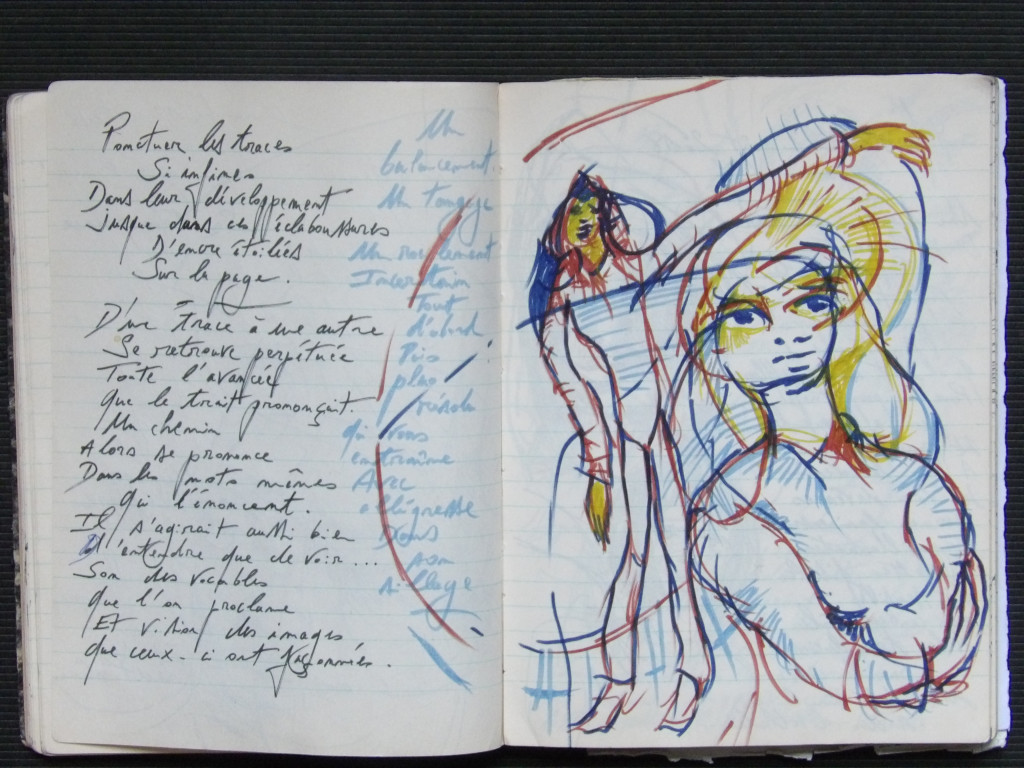 Ponctuer les traces
Si infimes
Dans leur développement
jusque dans ces éclaboussures
D'encre étoilées
Sur la page.
D'une trace à une autre
Se retrouve perpétuée
Toute l'avancée
que le trait prononçait.
Un chemin
Alors se prononce
Dans les mots mêmes
qui l'énoncent.
Il s'agirait aussi bien
D'entendre que de voir...
Son des vocables
que l'on proclame
Et vision des images
que ceux-ci ont façonnées.
Un
balancement
Un tangage
Un roulement
Incertain
Tout
d'abord
Puis
plus
résolu
qui vous
entraîne
Avec
allégresse
Dans
son
sillage